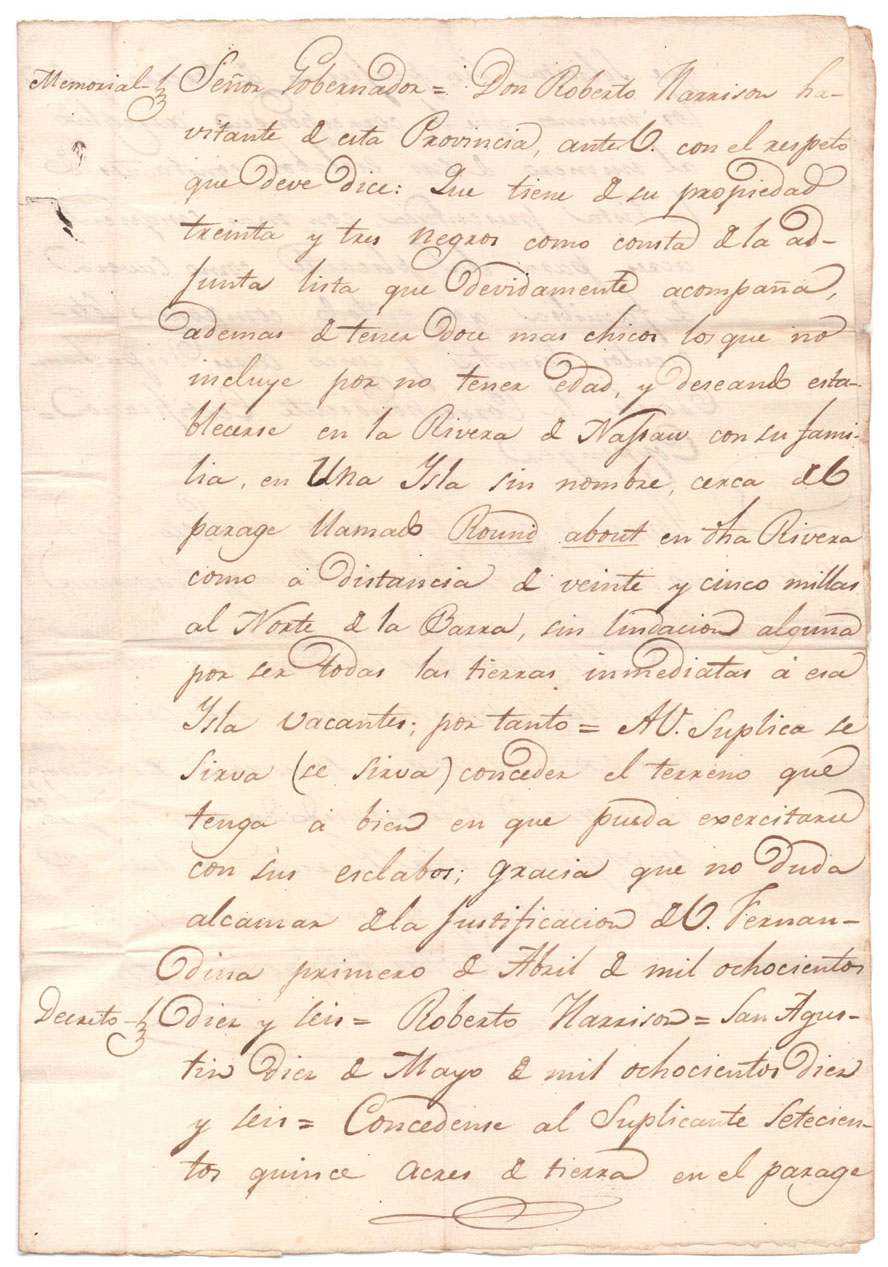 Memorial Señor Gobernador = Don Roberto Harrison ha-
vitante de esta Provincia, ante V. con el respeto
que deve dice: Que tiene de su propiedad
treinta y tres negros como consta de la ad-
junta lista que devidamente acompaña,
ademas de tener doce mas chicos los que no
incluye por no tener edad, y deseando esta-
blecerse en la Rivera de Nassau con su fami-
lia, en Una Ysla sin nombre, cerca del
parage llamado Round about en dha Rivera
como á distancia de veinte y cinco millas
al Norte de la Barra, sin lindacion alguna
por ser todas las tierras inmediatas á esa
Ysla vacantes; por tanto = A V. Suplica se
sirva (se sirva) conceder el terreno que
tenga á bien en que pueda exercitarse
con sus esclabos; gracia que no duda
alcansar de la Justificacion de V. Fernan-
dina primero de Abril de mil ochocientos
Decreto diez y seis = Roberto Harrison = San Agus-
tin diez de Mayo de mil ochocientos diez
y seis = Concedense al Suplicante setecien-
tos quince acres de tierra en el parage